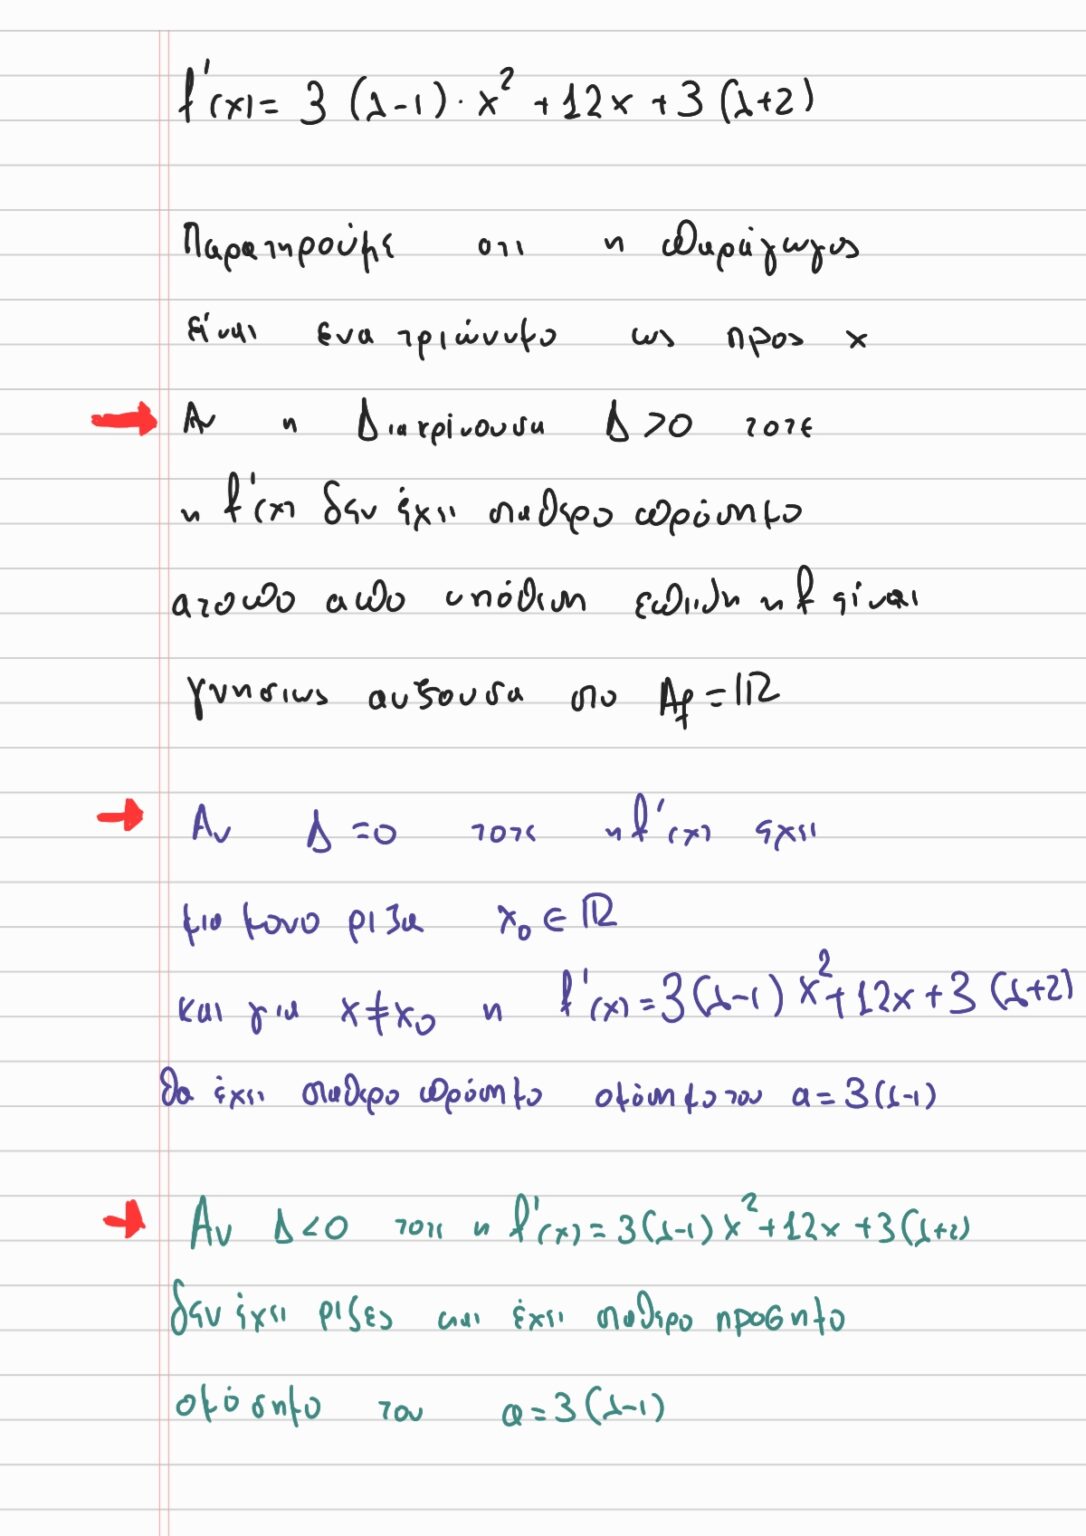 f'(x) = 3 (λ-1) · x² + 12x + 3 (λ+2)
Παρατηρούμε οτι η παράγωγος
είναι ενα τριώνυμο ως προς x
Αν η Διακρίνουσα Δ > 0 τοτε
η f'(x) δεν έχει σταθερο πρόσημο
ατοπο απο υπόθεση επειδη η f είναι
γνησιως αυξουσα στο Af = ℝ
Αν Δ = 0 τοτε η f'(x) έχει
μια μονο ριζα x₀ ∈ ℝ
και για x ≠ x₀ η f'(x) = 3(λ-1) x² + 12x + 3 (λ+2)
θα έχει σταθερο πρόσημο ομόσημο του α = 3(λ-1)
Αν Δ < 0 τοτε η f'(x) = 3(λ-1) x² + 12x + 3(λ+2)
δεν έχει ριζες και έχει σταθερο προσημο
ομόσημο του α = 3(λ-1)